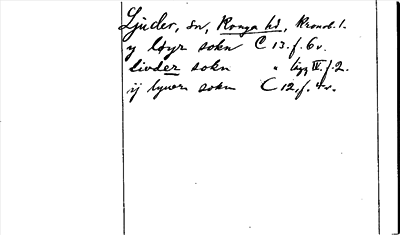 Ljuder, sn, Konga hd, Kronob. l.
y löyr sokn C 13. f. 6 v.
liuder sokn " lägg IV. f. 2.
ij lyuer sokn C 12, f. 4 v.